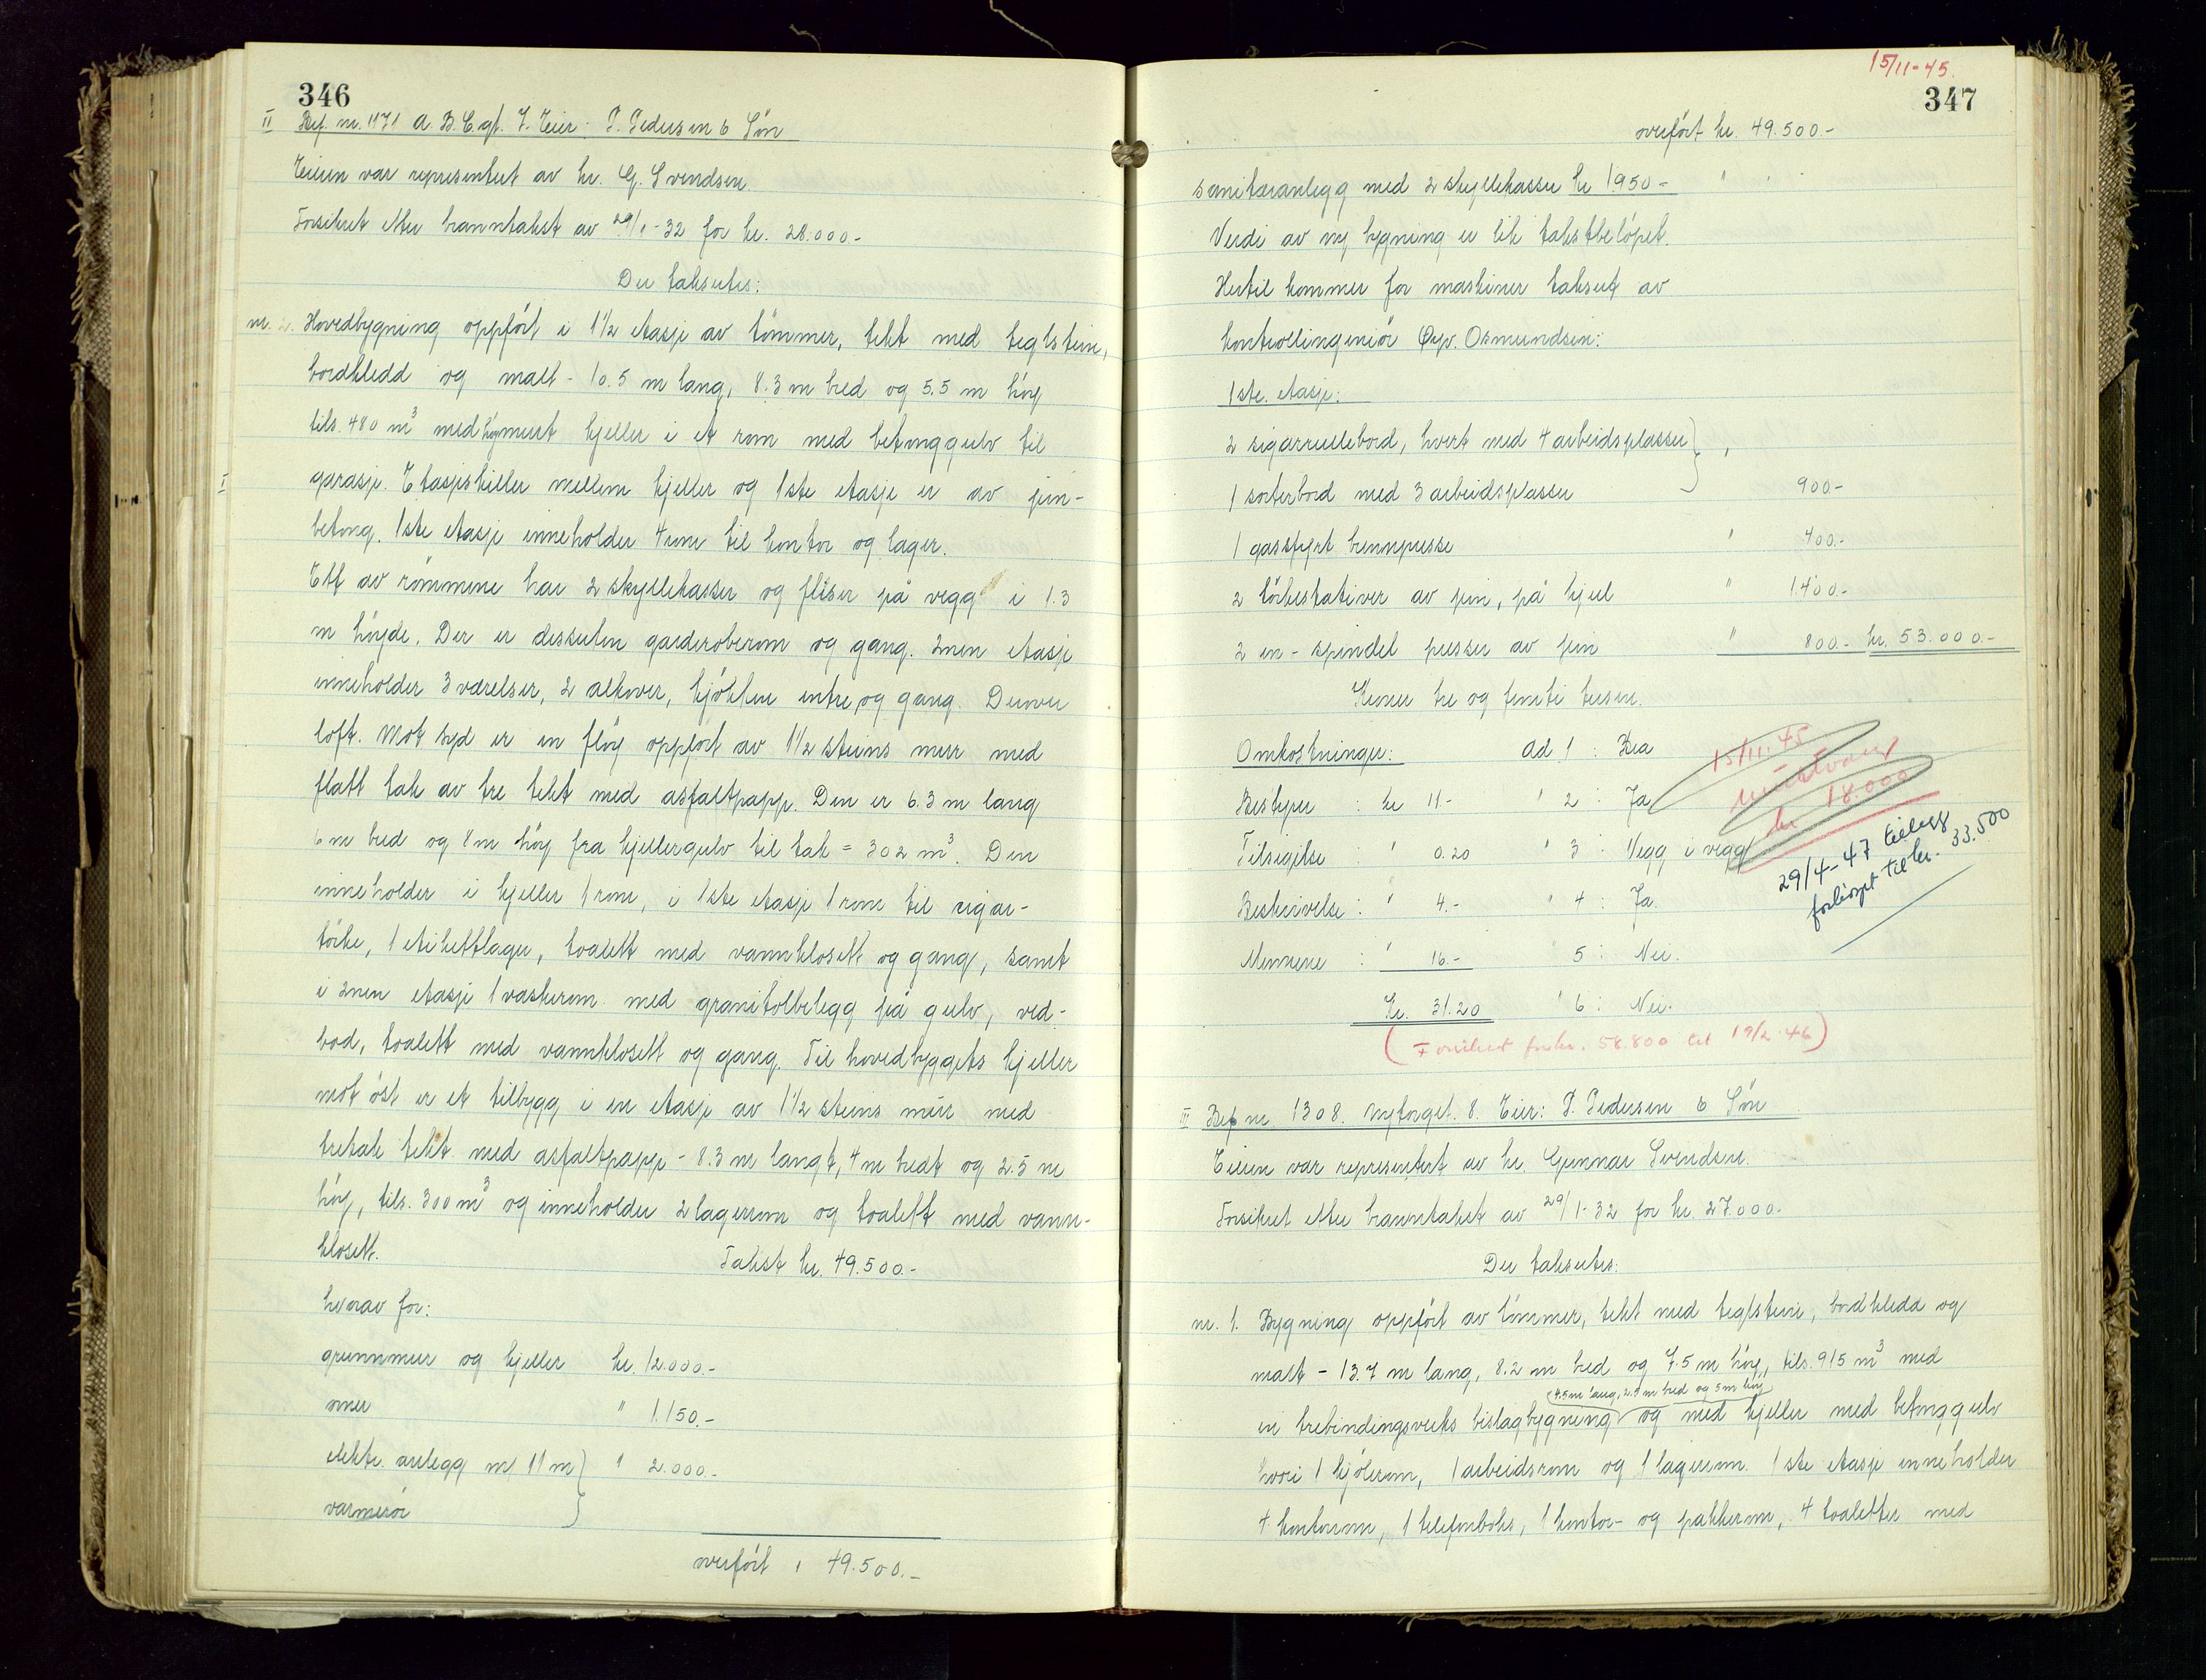 346
II Bef. nr. 1171 A.B.C.gt. 7. Eier: P. Pedersen & Sön
Eieren var representert av hr. G. Svendsen.
Forsikret etter branntakst av 29/1-32 for kr. 28.000.-
Der takseres:
nr. Hovedbygning oppfört i 1½ etasje av tömmer, tekt med teglstein,
bordkledd og malt - 10.5 m lang, 8.3 m bred og 5.5 m höy
tils. 480 m³ med höymurt kjeller i et rom med betonggulv til
I garasje. Etasjeskiller mellem kjeller og 1ste etasje er av jern-
betong. 1ste etasje inneholder 4 rom til kontor og lager.
Ett av rommene har 2 skyllekasser og fliser på vegg i 1.3
m höyde. Der er dessuten garderoberom og gang. 2nen etasje
inneholder 3 værelser, 2 alkover, kjökken entre og gang. Derover
loft. Mot syd er en flöy oppfört av 1½ steins mur med
flatt tak av tre tekt med asfaltpapp. Den er 6.3 m lang
6 m bred og 8 m höy fra kjellergulv til tak = 302 m³. Den
inneholder i kjeller 1 rom, i 1ste etasje 1 rom til sigar-
törke, 1 etikettlager, toalett med vannklosett og gang, samt
i 2nen etasje 1 vaskerom med granitolbelegg på gulv, ved-
bod, toalett med vannklosett og gang. Til hovedbyggets kjeller
mot öst er et tilbygg i en etasje av 1½ steins mur med
tretak tekt med asfaltpapp - 8.3 m langt, 4 m bredt og 2.5 m
höy, tils. 300 m³ og inneholder 2 lagerrom og toalett med vann-
klosett.
Takst kr. 49.500.-
hvorav for:
grunnmur og kjeller kr. 12.000.-
ovner " 1.150.-
elektr. anlegg m/ 11 m } " 2.000.-
varmerör }
overfört " 49.500.-
15/11-45.
347
overfört kr. 49.500.-
sanitæranlegg med 2 skyllekasser kr 1.950.- "
Verdi av ny bygning er lik takstbelöpet.
Hertil kommer for maskiner taksert av
kontrollingeniör Osmundsen:
1ste. etasje:
2 sigarrullebord, hvert med 4 arbeidsplasser }
1 sorterbord med 3 arbeidsplasser } 900.-
1 gassfyrt brennpresse " 400.-
2 törkestativer av jern, på hjul " 1.400.-
2 en-spindel presser av jern " 800.- kr. 53.000.-
Kroner tre og femti tusen.
Omkostninger: Ad 1 : Bra
Bestyrer : kr 11.- " 2 : Ja
Tilsigelse : " 0.20 " 3 : Vegg i vegg
Beskrivelse : " 4.- " 4 : Ja.
Mennene : " 16.- " 5 : Nei.
Kr. 31.20 " 6 : Nei.
15/11.45
kr 18.000
29/4-47 tillegg
forhöyet til kr. 33.500
(Forsikret for kr. 58.800 til 19/2-46)
III Bef nr. 1308. Nytorget. 8. Eier: P. Pedersen & Sön
Eieren var representert av hr. Gunnar Svendsen.
Forsikret etter branntakst av 29/1-32 for kr. 27.000.-
Der takseres:
nr. 1. Bygning oppfört av tömmer, tekt med teglstein, bordkledd og
malt - 13.7 m lang, 8.2 m bred og 7.5 m höy, tils. 915 m³ med
(4.5 m lang, 2.5 m bred og 5 m höy)
en trebindingsverks bislagbygning og med kjeller med betonggulv
hvori 1 kjölerom, 1 arbeidsrom og 1 lagerrom. 1ste etasje inneholder
4 kontorrom, 1 telefonboks, 1 kontor- og pakkerom, 4 toaletter med